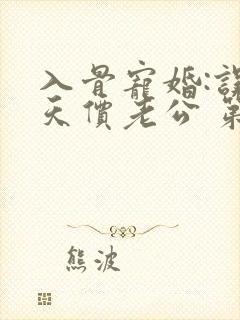 入骨寵婚:
天價老公 第
熊波